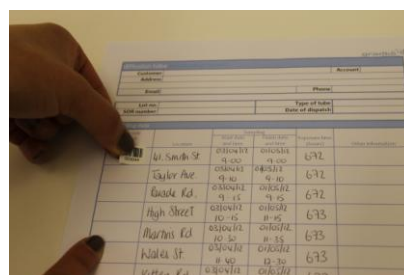 Diffusion tubes
Customer
Account
Address
Email
Phone
Lot no.
Type of tube
Date of dispatch
Location
Start date and time
Finish date and time
Exposure time (hours)
Other information
61. Smith St 03/04/12 9-00 01/05/12 9-00 672
Taylor Ave. 03/04/12 9-10 01/05/12 9-10 672
Roade Rd. 03/04/12 9-15 01/05/12 9-15 672
High Street 03/04/12 10-15 01/05/12 11-15 673
Martin's Rd 03/04/12 10-50 01/05/12 11-35 673
Wales St 03/04/12 11-40 01/05/12 12-30 673
03/04/12 01/05/12